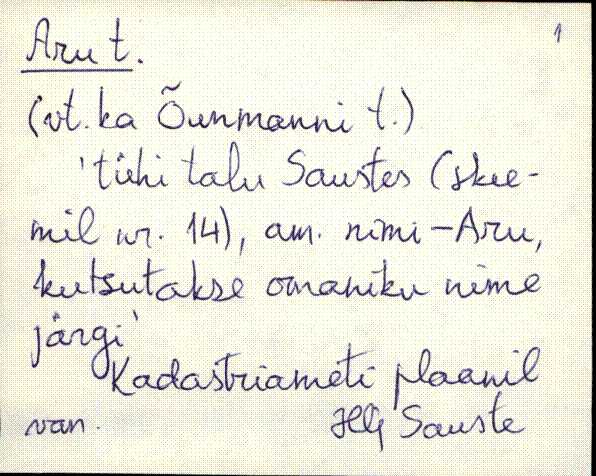 1
Aru t.
(vt. ka Õunmanni t.)
'tühi talu Saustes (skee-
mil nr. 14), am. nimi – Aru,
kutsutakse omaniku nime
järgi'
Kadastriameti plaanil
van. Hlg Sauste